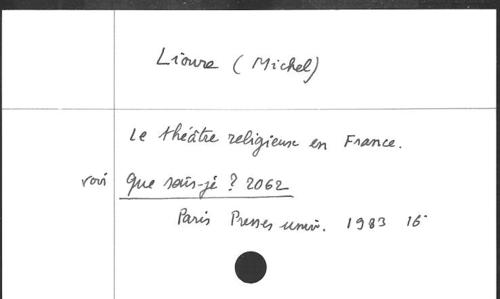 Lioure (Michel)
Le théâtre religieux en France.
Que sais-je ? 2062
Paris Presses univ. 1983 16